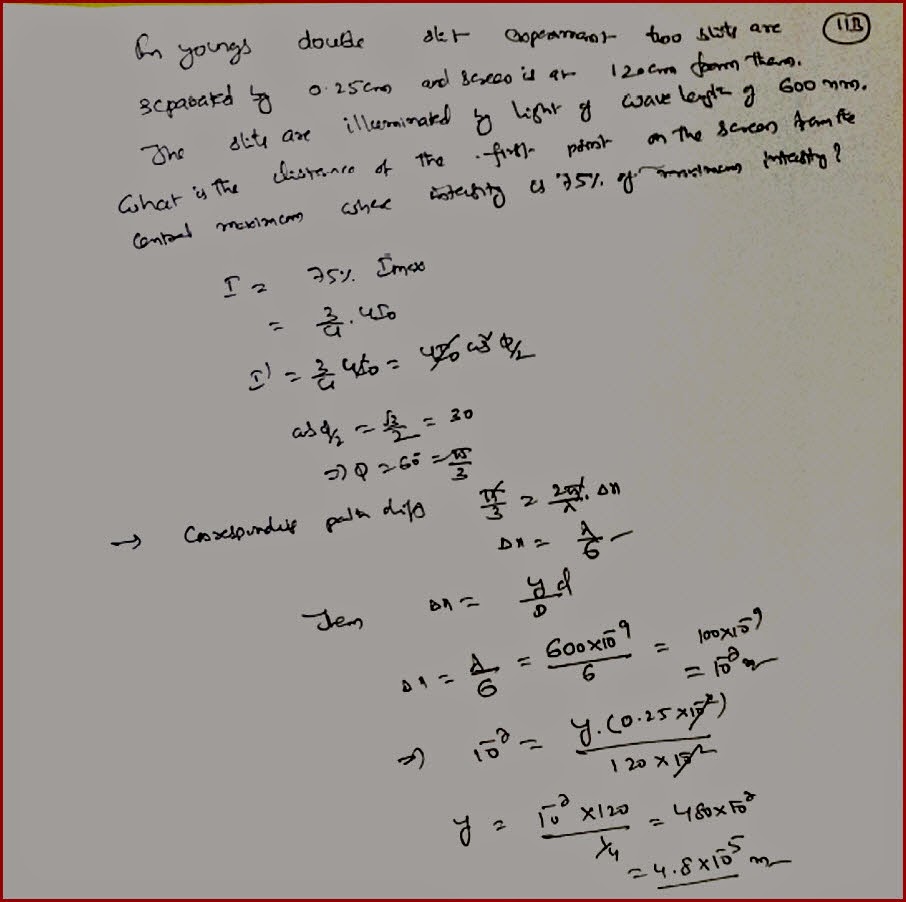 In youngs double slit experiment two slits are 11B
separated by 0.25cm and screen is at 120cm from them.
The slits are illuminated by light of wave length of 600 nm.
What is the distance of the first point on the screen from the
central maximum where intensity is 75% of maximum intensity?
I = 75% Imax
= 3/4 . 4I0
I' = 3/4 4I0 = 4I0 cos² φ/2
cos φ/2 = √3/2 = 30
⇒ φ = 60 = π/3
→ Corresponding path diff π/3 = 2π/λ . Δx
Δx = λ/6
Then Δx = yd/D
Δx = λ/6 = 600×10⁻⁹/6 = 100×10⁻⁹
= 10⁻⁷ m
⇒ 10⁻⁷ = y.(0.25×10⁻²)/120×10⁻²
y = 10⁻⁷ ×120/¼ = 480×10⁻⁷
= 4.8×10⁻⁵ m